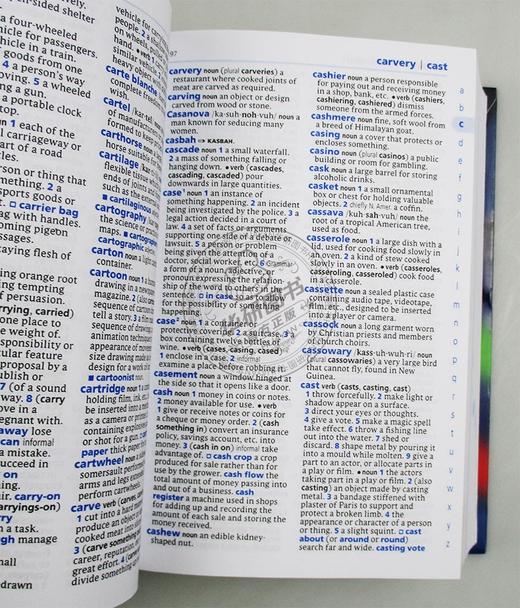 -sided shelter
a four-wheeled
vehicle for passengers.
vehicle in a train.
goods from one
4 a person's way
moving. 5 a wheeled
a gun.
a portable clock
un 1 each of the
carriageway or
art of a road
or thing that
goods or
2 a
carrier bag
bag with handles.
pigeon
messages.
eaying flesh of
orange root
tempting
of persuasion.
carrying, carried)
one place to
weight of.
responsibility or
feature
proposal by a
7 (of a sound
8 (carry
ove in a
egnant with.
away lose
can informal
a mistake.
succeed in
on
carry-on
carryings-on)
rry
n a task.
gh manage
drawn
vehicle for carry
people. 2 a
wheels
hand.
vehicle
heavy object
carte blanche
complete freed
cartel /kar-tel,
of manufactur
formed to keep
carthorse noun
horse suitable f
cartilage /kar-ti
flexible tissue
ends of joints an
such as the exter
■ cartilaginous
cartography
the science or pr
maps. ■ cartograp
cartographic
carton noun a light
container.
cartoon noun 1 a
drawing in a news
magazine. 2 (also
cartoon strip)
tell a story. 3 a film
sequence of
drawings
animation techni
appearance of mov
size drawing made
design for a work
■ cartoonist noun
cartridge noun 1 a
holding film, ink,
be inserted into a
as a camera or prin
containing explosive
or shot for a gun.
paper thick paper f
cartwheel noun a
somersault perform
arms and legs exten
perform cartwheels
carve verb (carved, car
1 cut into a hard mate
produce an object or
cooked meat into slice
3 (carve something out)
career, reputation, etc.
great effort. 4 (carve so
divide something up
97
carvery | cast
carvery noun (plural carveries) a
restaurant where cooked joints of
meat are carved as required.
carving noun an object or design
carved from wood or stone.
Casanova /kas-uh-noh-vuh/ noun a
man known for seducing many
women.
casbah ⇨ KASBAH.
cascade noun 1 a small waterfall.
2 a mass of something falling or
hanging down. • verb (cascades,
cascading, cascaded) pour
downwards in large quantities.
case¹ noun 1 an instance of
something happening. 2 an incident
being investigated by the police. 3 a
legal action decided in a court of
law. 4 a set of facts or arguments
supporting one side of a debate or
lawsuit. 5 a person or problem
being given the attention of a
doctor, social worker, etc. 6 Grammar
a form of a noun, adjective, or
pronoun expressing the relation-
ship of the word to others in the
sentence. □ in case so as to allow
for the possibility of something
happening.
case² noun 1 a container or
protective covering. 2 a suitcase. 3 a
box containing twelve bottles of
wine. • verb (cases, casing, cased)
1 enclose in a case. 2 informal
examine a place before robbing it.
casement noun a window hinged at
the side so that it opens like a door.
cash noun 1 money in coins or notes.
2 money available for use. • verb
1 give or receive notes or coins for
a cheque or money order. 2 (cash
something in) convert an insurance
policy, savings account, etc. into
money. 3 (cash in on) informal take
advantage of. □ cash crop a crop
produced for sale rather than for
use by the grower. cash flow the
total amount of money passing into
and out of a business. cash
register a machine used in shops
for adding up and recording the
amount of each sale and storing the
money received.
cashew noun an edible kidney-
shaped nut.
cashier noun a person responsible
for paying out and receiving money
in a shop, bank, etc. • verb (cashiers,
cashiering, cashiered) dismiss
someone from the armed forces.
cashmere noun fine, soft wool from
a breed of Himalayan goat.
casing noun a cover that protects or
encloses something.
casino noun (plural casinos) a public
building or room for gambling.
cask noun a large barrel for storing
alcoholic drinks.
casket noun 1 a small ornamental
box or chest for holding valuable
objects. 2 chiefly N. Amer. a coffin.
cassava /kuh-sah-vuh/ noun the
root of a tropical American tree,
used as food.
casserole noun 1 a large dish with a
lid, used for cooking food slowly in
an oven. 2 a kind of stew cooked
slowly in an oven. • verb (casseroles,
casseroling, casseroled) cook food
in a casserole.
cassette noun a sealed plastic case
containing audio tape, videotape,
film, etc., designed to be inserted
into a player or camera.
cassock noun a long garment worn
by Christian priests and members
of church choirs.
cassowary /kass-uh-wuh-ri/ noun
(plural cassowaries) a very large bird
that cannot fly, found in New
Guinea.
cast verb (casts, casting, cast)
1 throw forcefully. 2 make light or
shadow appear on a surface.
3 direct your eyes or thoughts.
4 give a vote. 5 make a magic spell
take effect. 6 throw a fishing line
out into the water. 7 shed or
discard. 8 shape metal by pouring it
into a mould while molten. 9 give a
part to an actor, or allocate parts in
a play or film. • noun 1 the actors
taking part in a play or film. 2 (also
casting) an object made by casting
metal. 3 a bandage stiffened with
plaster of Paris to support and
protect a broken limb. 4 the
appearance or character of a person
or thing. 5 a slight squint. □ cast
about (or around or round)
search far and wide. casting vote
a
b
c
d
e
f
g
h
i
j
k
l
m
n
o
p
q
r
s
t
u
v
w
x
y
z